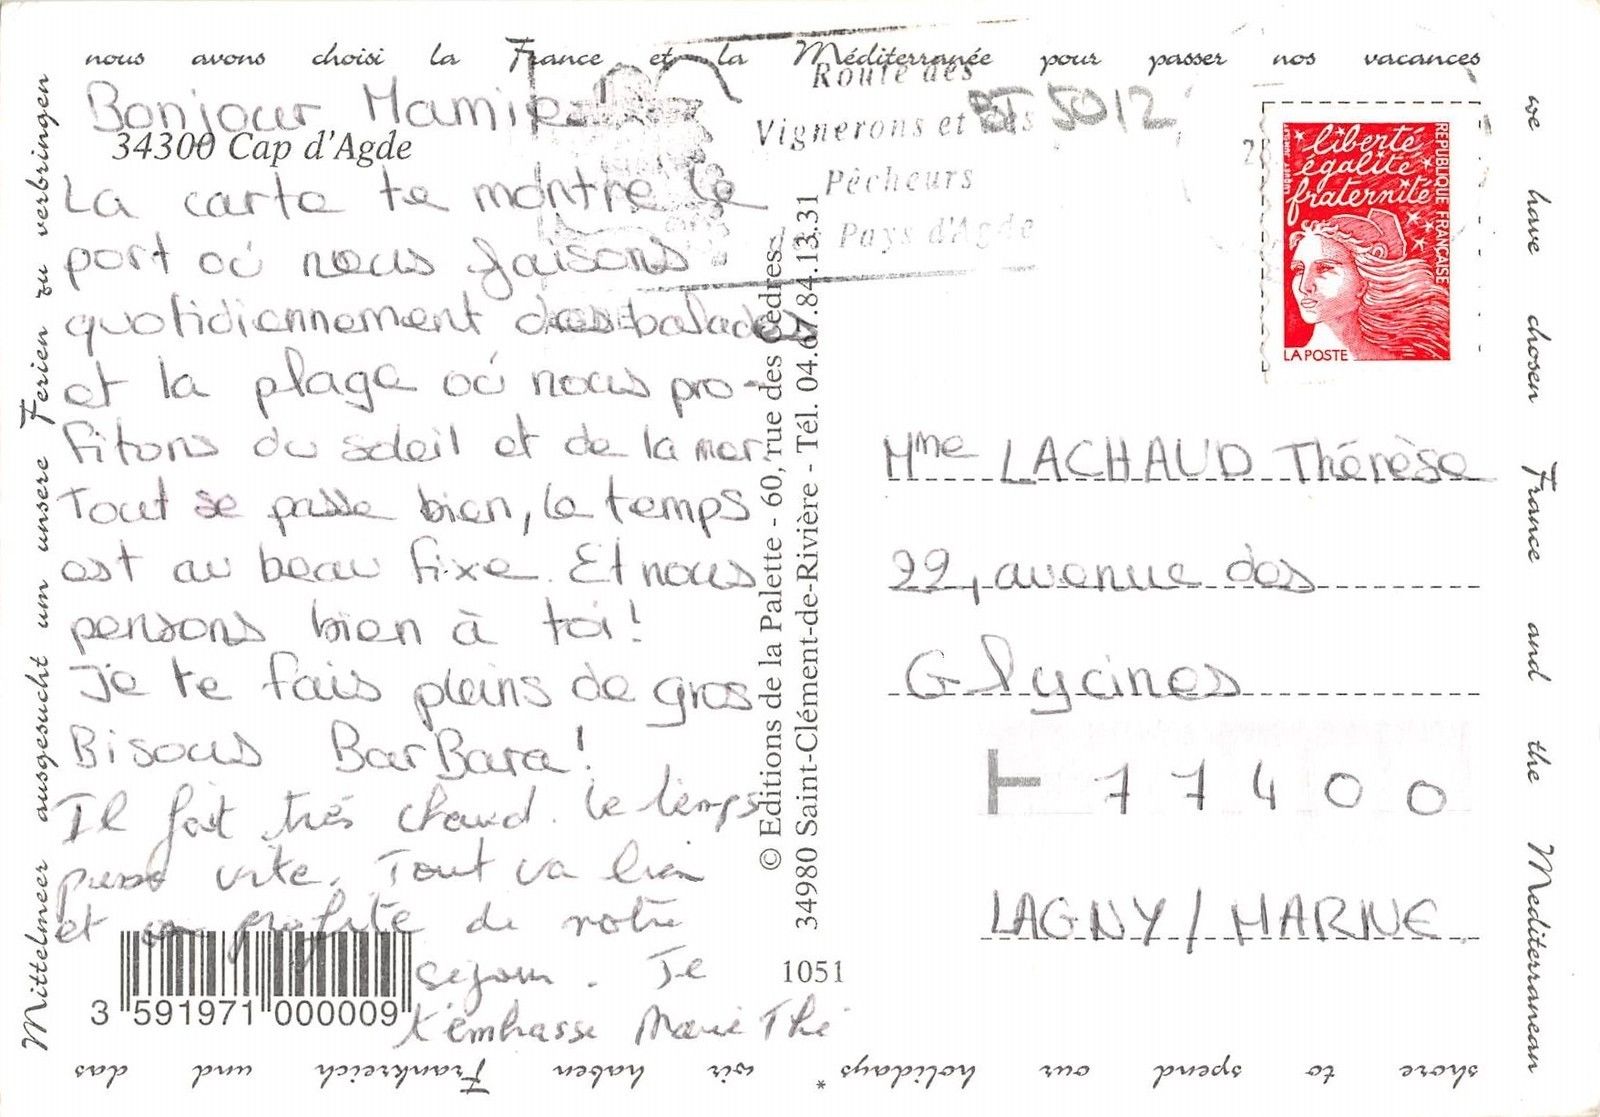 nous avons choisi la France et la Méditerranée pour passer nos vacances
Bonjour Mamie
34300 Cap d'Agde
La carte te montre le
port où nous faisons
quotidiennement des balades
et la plage où nous pro-
fitons du soleil et de la mer
Tout se passe bien, le temps
est au beau fixe. Et nous
pensons bien à toi!
Je te fais pleins de gros
Bisous BarBara!
Il fait très chaud. Le temps
passe vite. Tout va bien
et on profite de notre
séjour. Je
t'embrasse Marie Thé
3 591971 000009
1051
© Editions de la Palette - 60, rue des Cèdres
34980 Saint-Clément-de-Rivière - Tél. 04.67.84.13.31
Route des
Vignerons et des
Pêcheurs
du Pays d'Agde
BT 5012
liberté
égalité
fraternité
REPUBLIQUE FRANÇAISE
LA POSTE
Mme LACHAUD Thérèse
22, avenue des
Glycines
77400
LAGNY / MARNE
we have chosen France and the Mediterranean
shore to spend our holidays * wir haben Frankreich und das
Mittelmeer ausgesucht um unsere Ferien zu verbringen